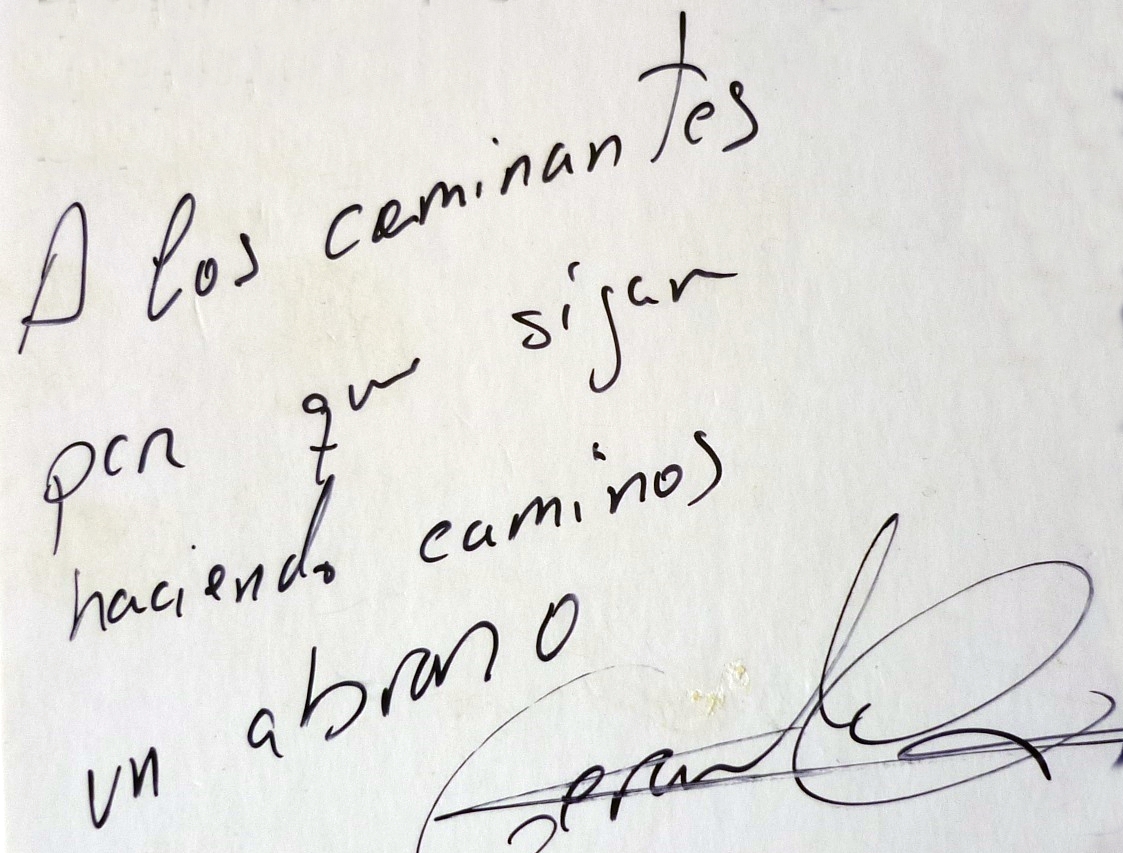 A los caminantes
par que sigan
haciendo caminos
un abrazo